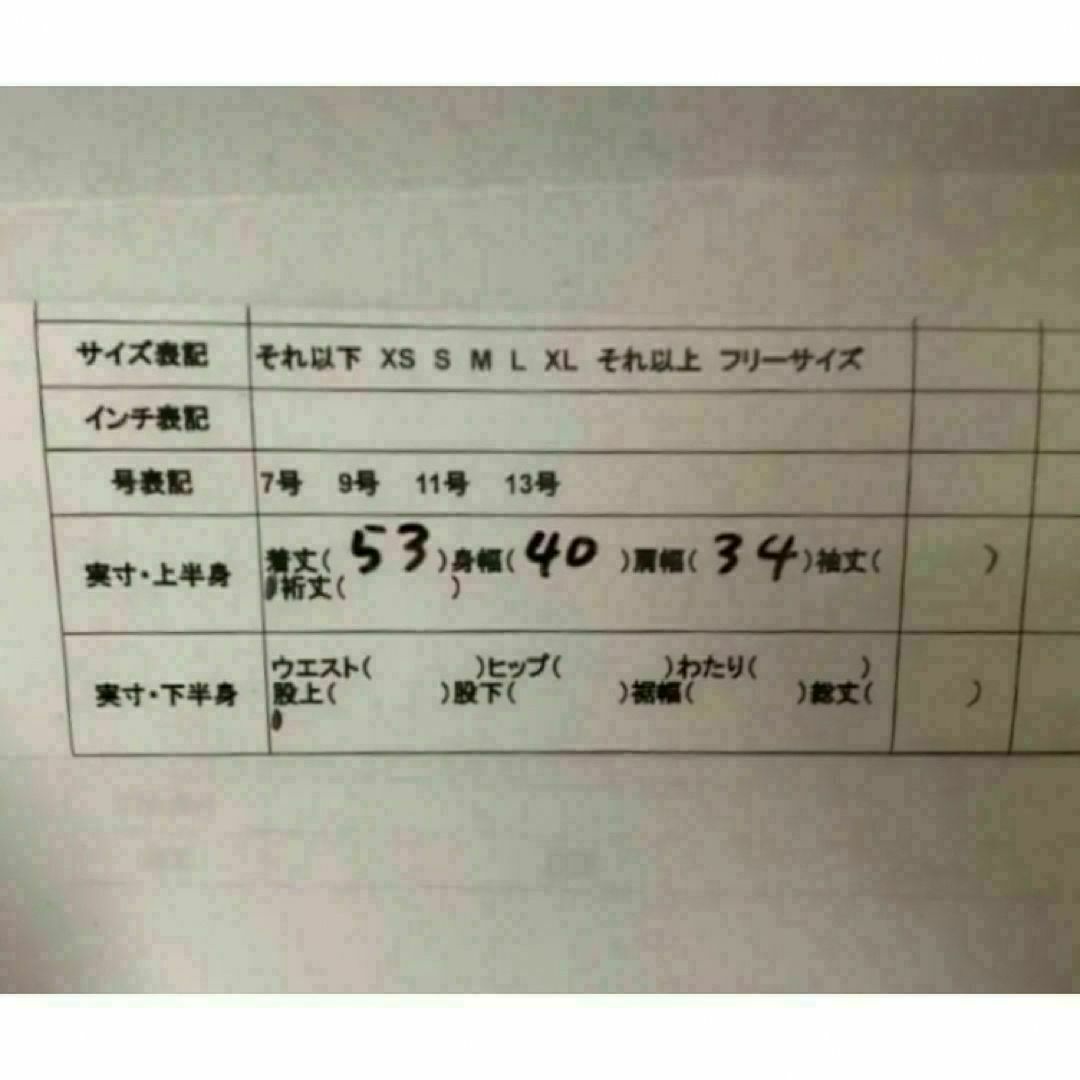 サイズ表記 それ以下 XS S M L XL それ以上 フリーサイズ
インチ表記
号表記 7号 9号 11号 13号
実寸・上半身 着丈( 53 )身幅( 40 )肩幅( 34 )袖丈( )
裄丈( )
実寸・下半身 ウエスト( )ヒップ( )わたり( )
股上( )股下( )裾幅( )総丈( )